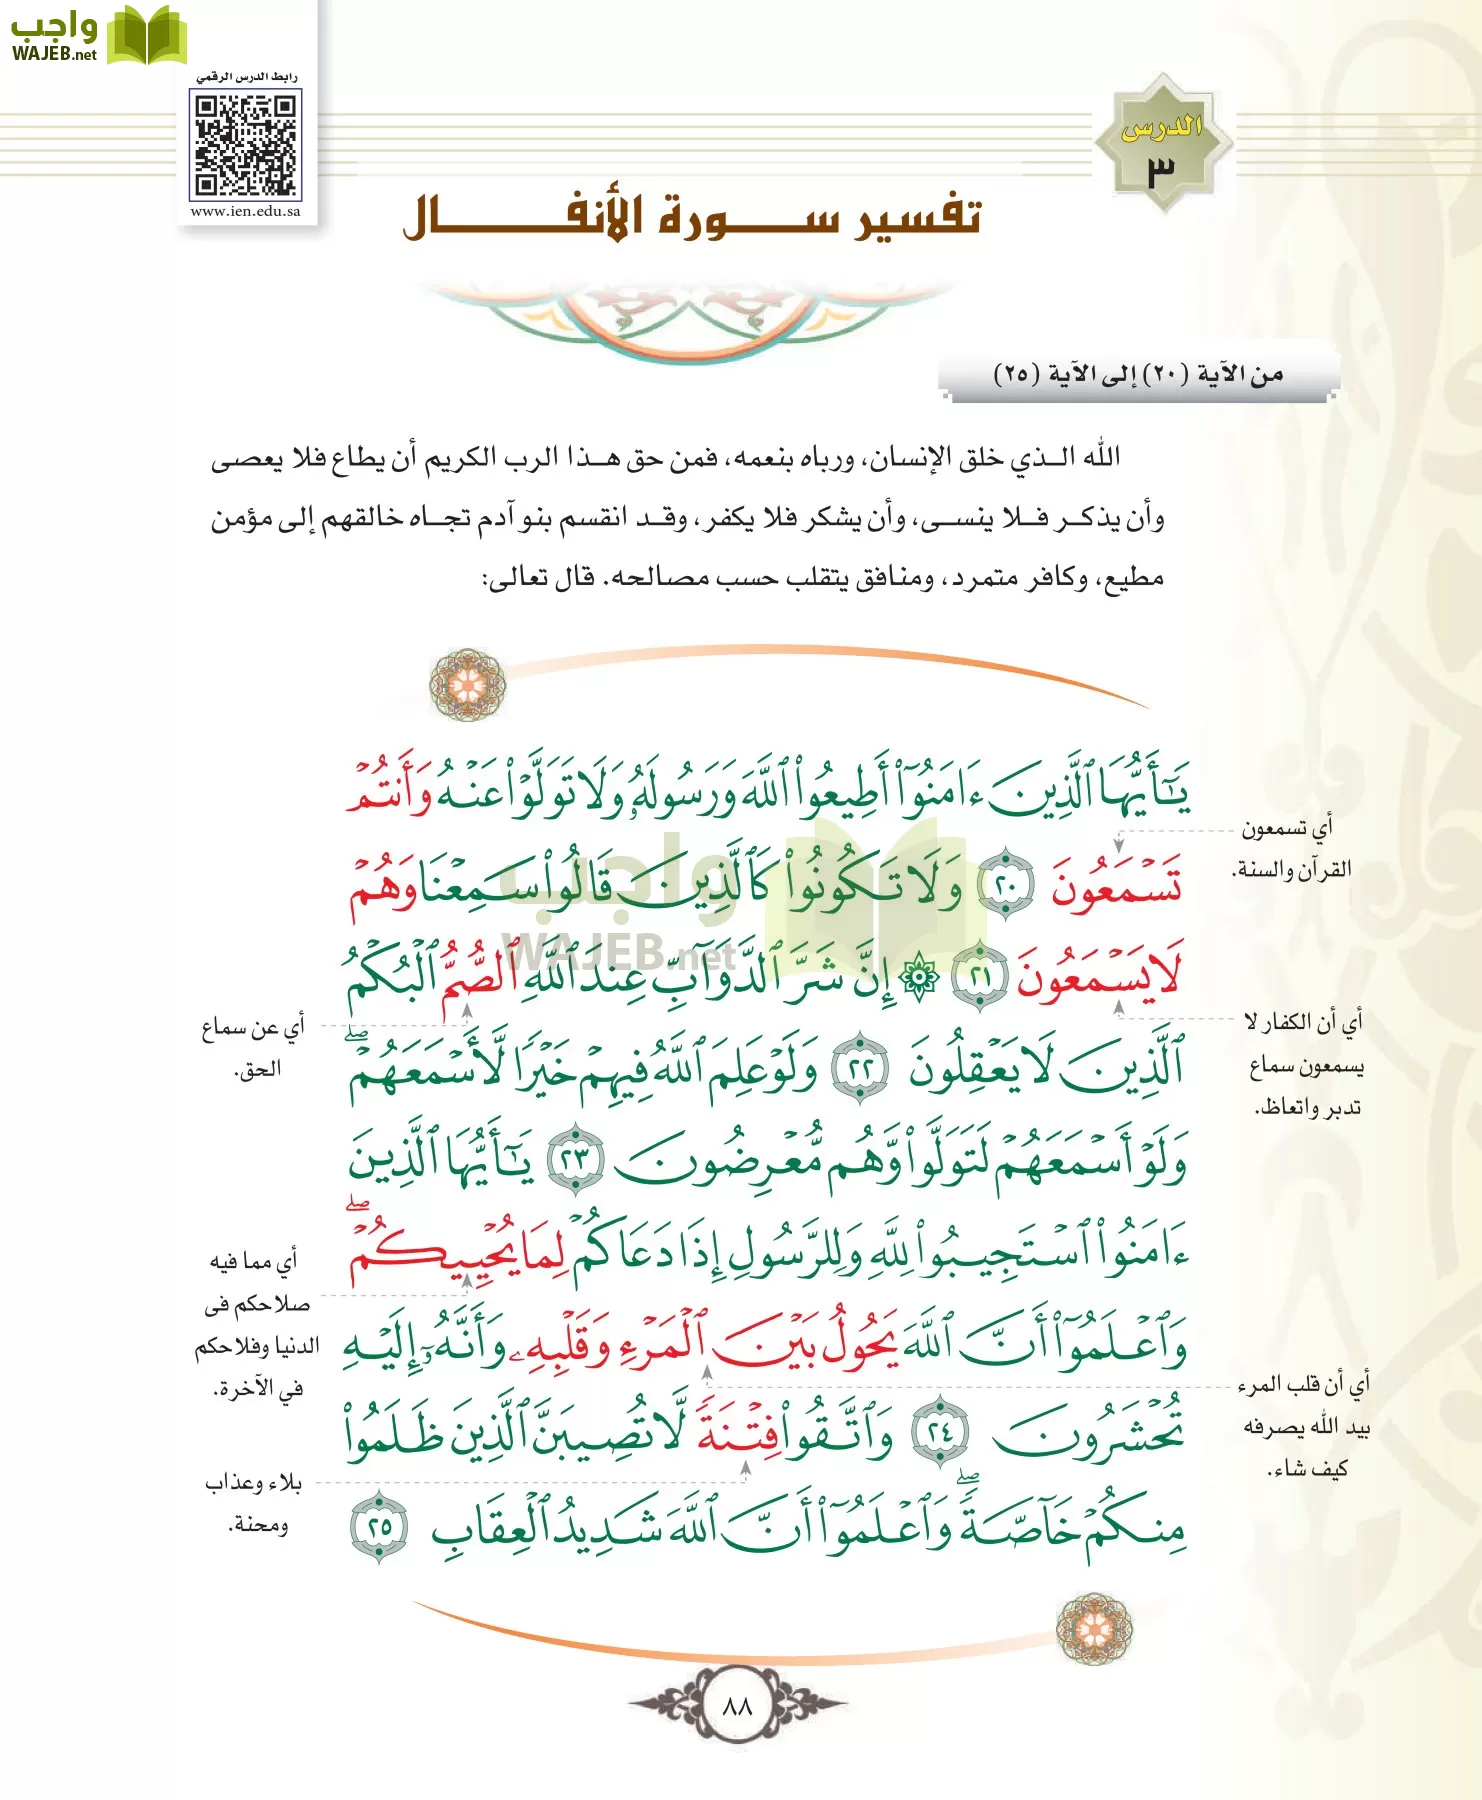 واجب
WAJEB.net
رابط الدرس الرقمي
www.ien.edu.sa
الدرس
٣
تفسير سورة الأنفال
من الآية (٢٠) إلى الآية (٢٥)
الله الذي خلق الإنسان، ورباه بنعمه، فمن حق هذا الرب الكريم أن يطاع فلا يعصى
وأن يذكر فلا ينسى، وأن يشكر فلا يكفر، وقد انقسم بنو آدم تجاه خالقهم إلى مؤمن
مطيع، وكافر متمرد، ومنافق يتقلب حسب مصالحه. قال تعالى:
يَٰٓأَيُّهَا ٱلَّذِينَ ءَامَنُوٓا۟ أَطِيعُوا۟ ٱللَّهَ وَرَسُولَهُۥ وَلَا تَوَلَّوْا۟ عَنْهُ وَأَنتُمْ
تَسْمَعُونَ ٢٠ وَلَا تَكُونُوا۟ كَٱلَّذِينَ قَالُوا۟ سَمِعْنَا وَهُمْ
لَا يَسْمَعُونَ ٢١ ۞ إِنَّ شَرَّ ٱلدَّوَآبِّ عِندَ ٱللَّهِ ٱلصُّمُّ ٱلْبُكْمُ
ٱلَّذِينَ لَا يَعْقِلُونَ ٢٢ وَلَوْ عَلِمَ ٱللَّهُ فِيهِمْ خَيْرًا لَّأَسْمَعَهُمْ ۖ
وَلَوْ أَسْمَعَهُمْ لَتَوَلَّوا۟ وَّهُم مُّعْرِضُونَ ٢٣ يَٰٓأَيُّهَا ٱلَّذِينَ
ءَامَنُوا۟ ٱسْتَجِيبُوا۟ لِلَّهِ وَلِلرَّسُولِ إِذَا دَعَاكُمْ لِمَا يُحْيِيكُمْ ۖ
وَٱعْلَمُوٓا۟ أَنَّ ٱللَّهَ يَحُولُ بَيْنَ ٱلْمَرْءِ وَقَلْبِهِۦ وَأَنَّهُۥٓ إِلَيْهِ
تُحْشَرُونَ ٢٤ وَٱتَّقُوا۟ فِتْنَةً لَّا تُصِيبَنَّ ٱلَّذِينَ ظَلَمُوا۟
مِنكُمْ خَآصَّةً ۖ وَٱعْلَمُوٓا۟ أَنَّ ٱللَّهَ شَدِيدُ ٱلْعِقَابِ ٢٥
أي تسمعون
القرآن والسنة.
أي أن الكفار لا
يسمعون سماع
تدبر واتعاظ.
أي عن سماع
الحق.
أي مما فيه
صلاحكم فى
الدنيا وفلاحكم
في الآخرة.
أي أن قلب المرء
بيد الله يصرفه
كيف شاء.
بلاء وعذاب
ومحنة.
واجب
WAJEB.net
٨٨